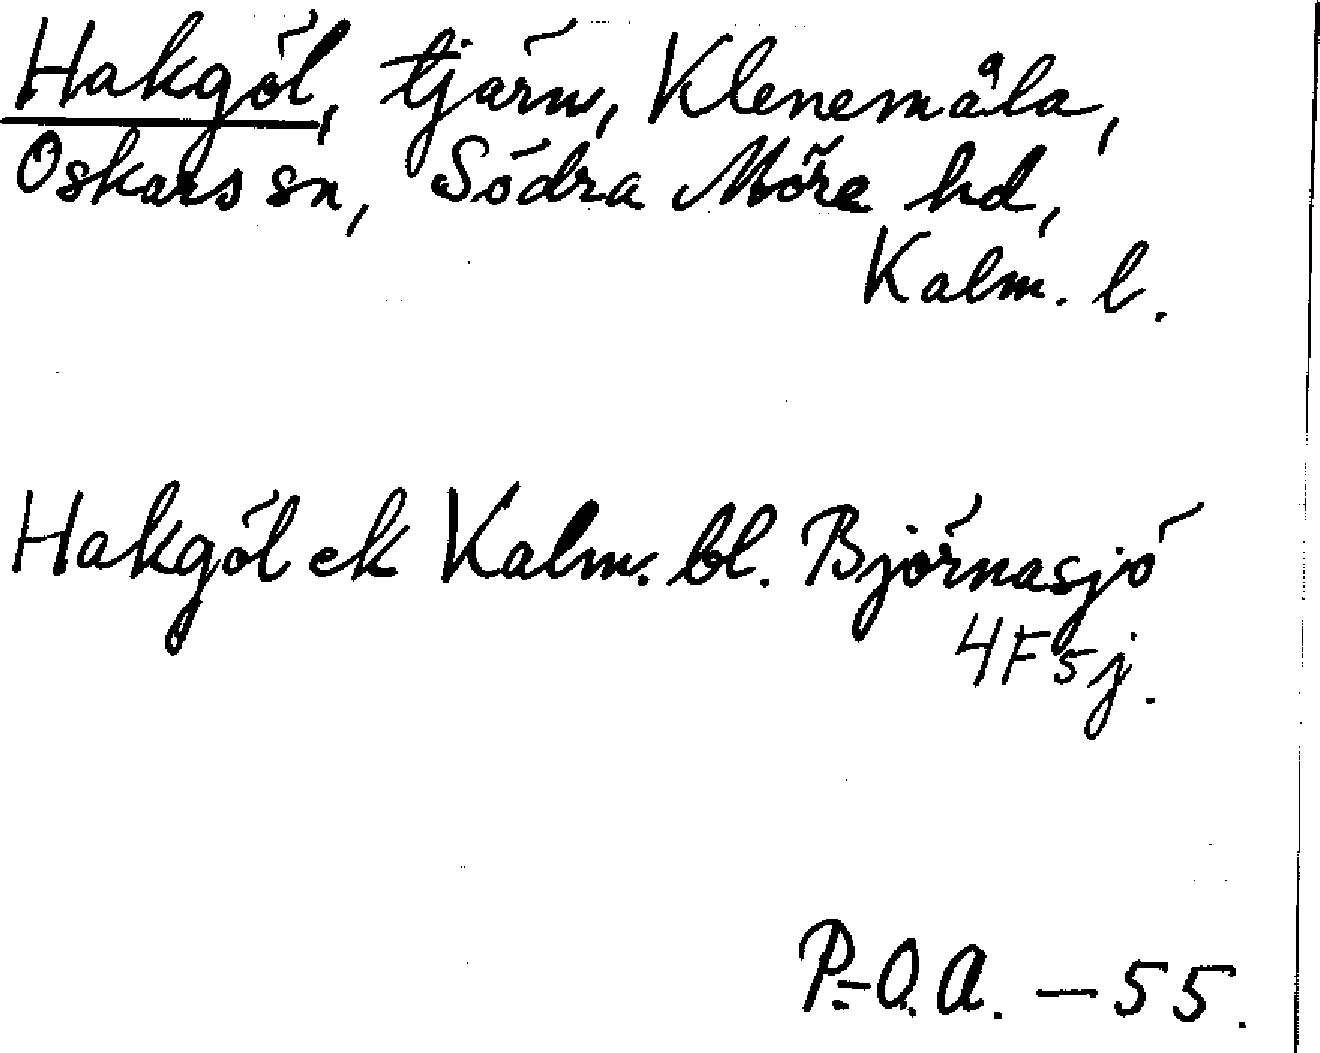 Hakgöl, tjärn, Klenemåla,
Oskars sn, Södra Möre hd,
Kalm. l.
Hakgöl ek Kalm. bl. Björnasjö
4F5j.
P.-O.A. — 55.